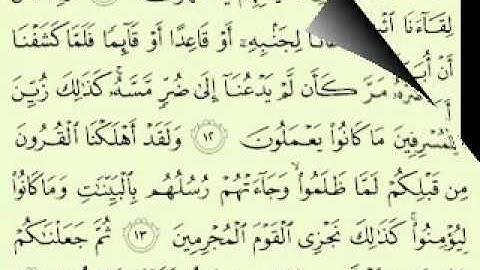 لِقَآءَنَا
لِجَنۢبِهِۦٓ أَوْ قَاعِدًا أَوْ قَآئِمًا فَلَمَّا كَشَفْنَا
مَرَّ كَأَن لَّمْ يَدْعُنَآ إِلَىٰ ضُرٍّ مَّسَّهُۥ ۚ كَذَٰلِكَ زُيِّنَ
لِلْمُسْرِفِينَ مَا كَانُوا۟ يَعْمَلُونَ ١٢ وَلَقَدْ أَهْلَكْنَا ٱلْقُرُونَ
مِن قَبْلِكُمْ لَمَّا ظَلَمُوا۟ ۙ وَجَآءَتْهُمْ رُسُلُهُم بِٱلْبَيِّنَٰتِ وَمَا كَانُوا۟
لِيُؤْمِنُوا۟ ۚ كَذَٰلِكَ نَجْزِى ٱلْقَوْمَ ٱلْمُجْرِمِينَ ١٣ ثُمَّ جَعَلْنَٰكُمْ